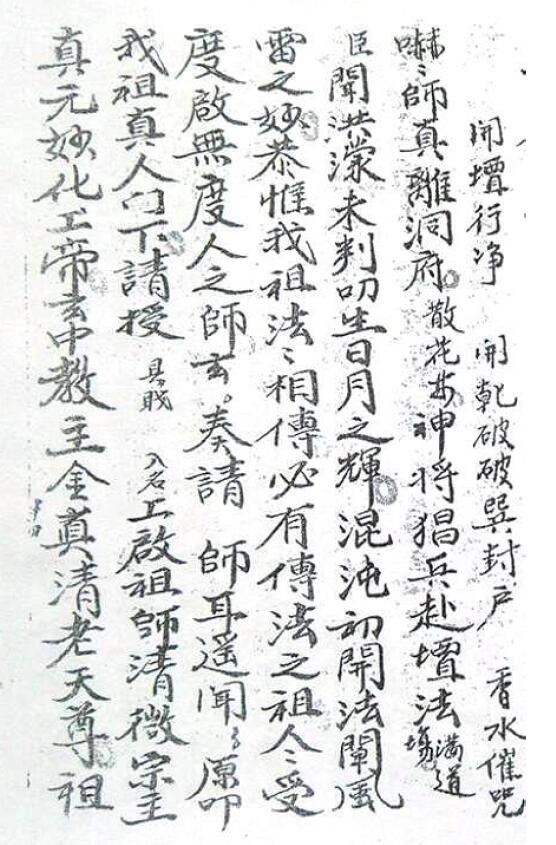 開壇行净 開乾破破巽封户 香水催咒
嚇〻師真離洞府散花女神将猖兵赴壇法滿道塲
臣聞洪濛未判叨生日月之輝混沌初開法闡風
雷之妙恭惟我祖法〻相傳必有傳法之祖人〻受
度啟無度人之師玄奏請 師耳遥聞〻原叩
我祖真人门下請授 具職 入名 上啟祖師清微宗主
真元妙化上帝玄中教主金真清老天尊祖